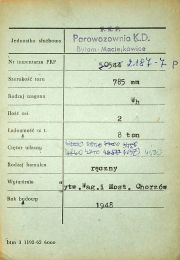 P.K.P.
Jednostka służbowa Parowozownia K.D.
Bytom-Maciejkowice
Nr inwentarza PKP 50544 2187-7 p
Szerokość toru 785 mm
Rodzaj wagonu Wh
Ilość osi 2
Ładowność w t. 8 ton
Ciężar własny
Rodzaj hamulca ręczny
Wytwórnia Wytw.Wag.i Most. Chorzów
Rok budowy 1948